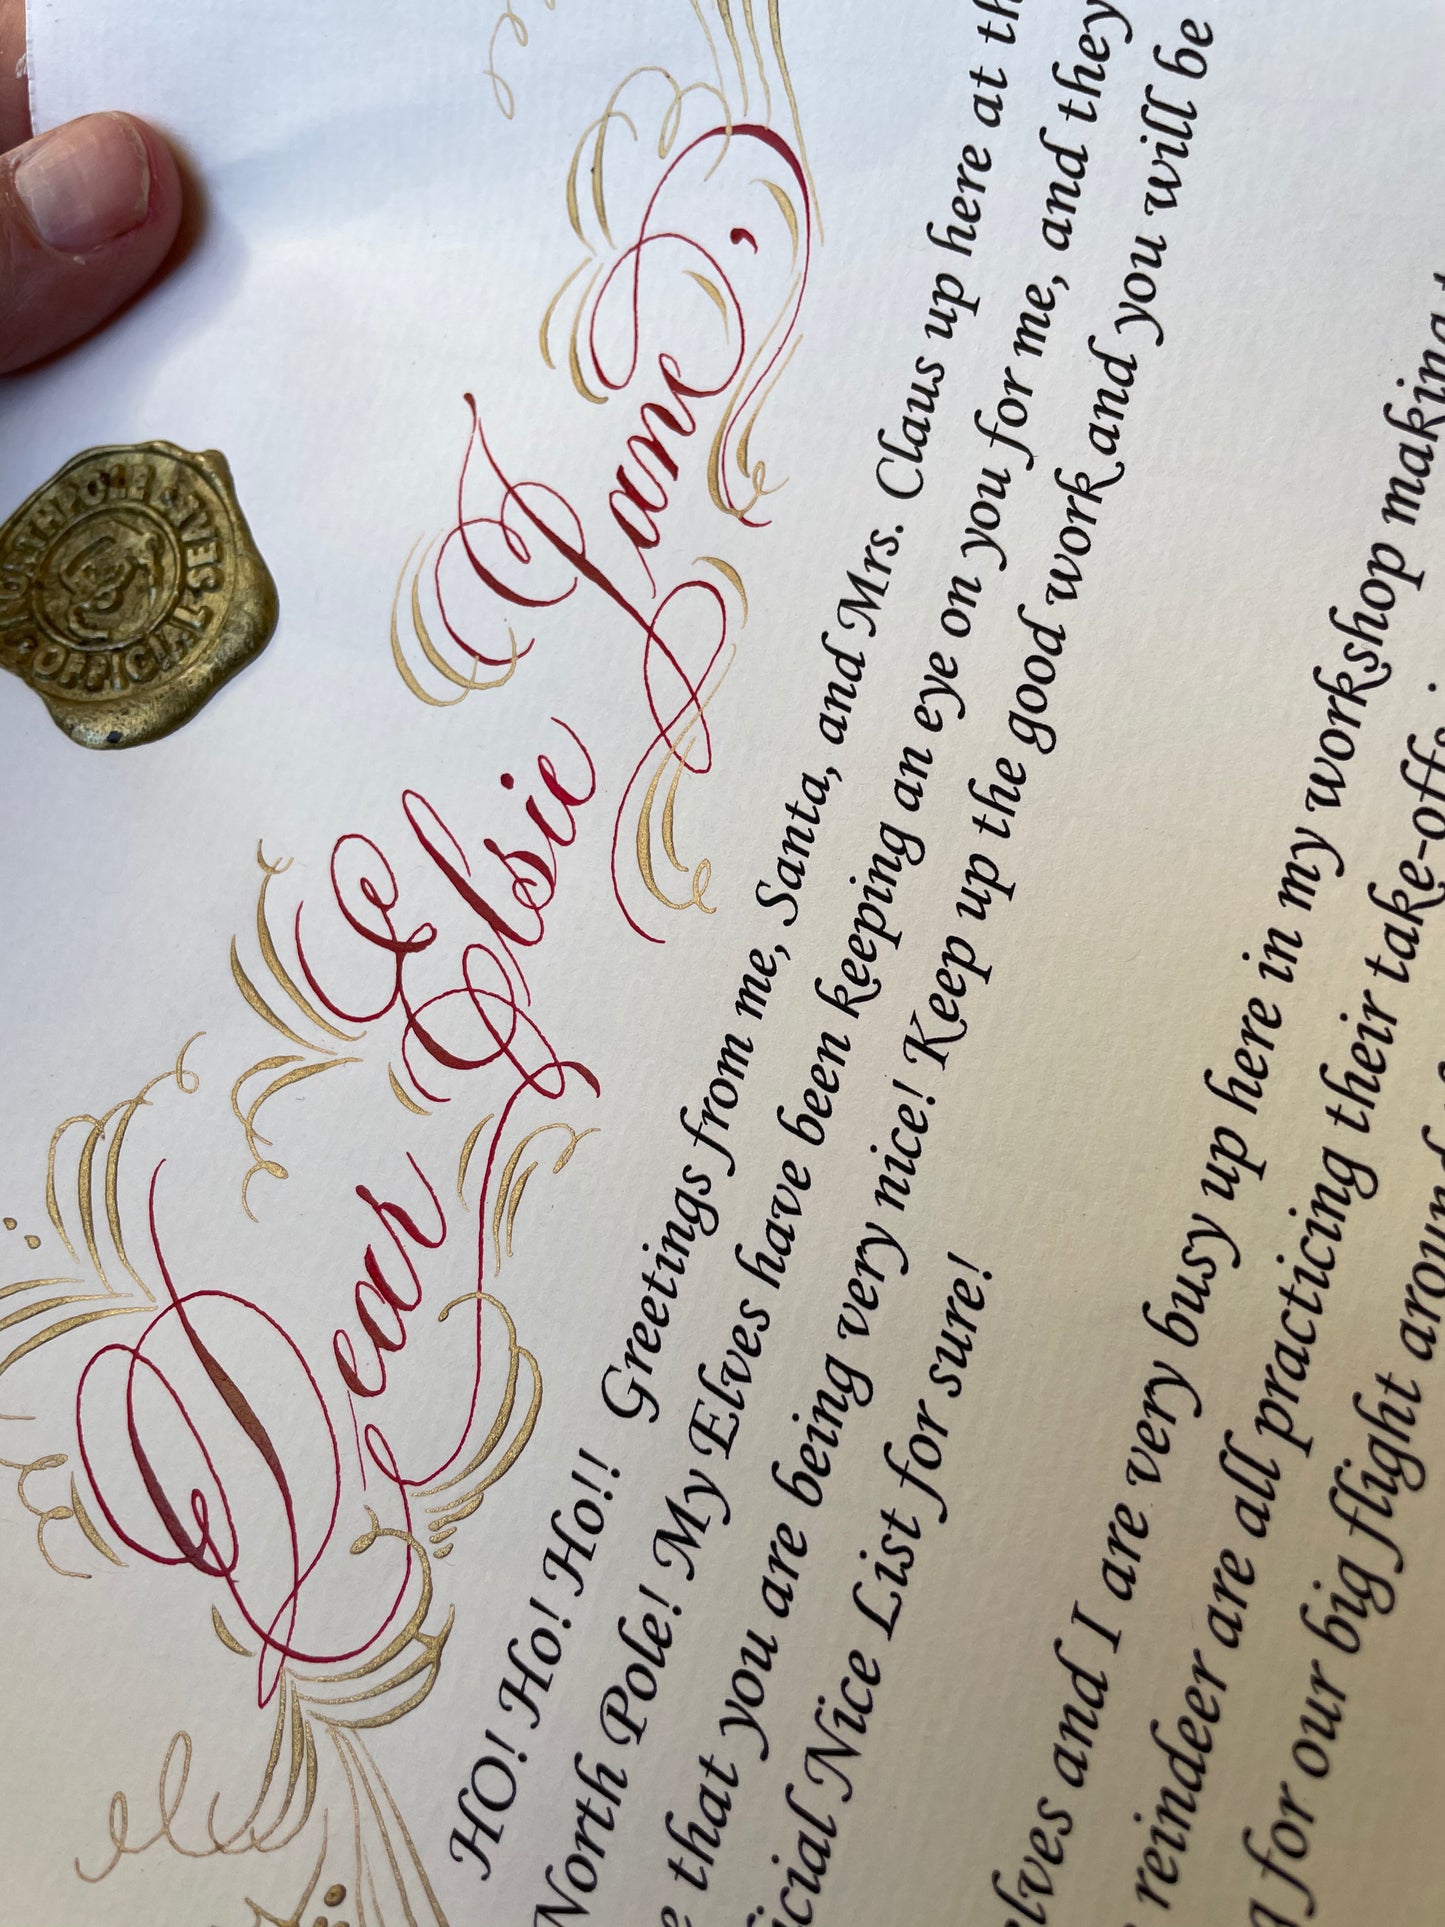 NORTHPOLE
OFFICIAL
Dear Elsie Jane,
HO! Ho! Ho! Ho!! Greetings from me, Santa, and Mrs. Claus up here at th
North Pole! My Elves have been keeping an eye on you for me, and they
e that you are being very nice! Keep up the good work and you will be
icial Nice List for sure!
lves and I are very busy up here in my workshop making
reindeer are all practicing their take-offs
g for our big flight around